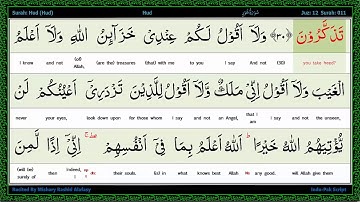 Surah: Hud (Hud) Hud Juz: 12 Surah: 011
تَذَكَّرُوْنَ ﴿۳۰﴾ وَلَاۤ اَقُوْلُ لَكُمْ عِنْدِيْ خَزَآئِنُ اللّٰهِ وَلَاۤ اَعْلَمُ
I know and not (of) Allah, (are the) treasures (that) with me to you I say And not (30) will take heed?
الْغَيْبَ وَلَاۤ اَقُوْلُ اِنِّيْ مَلَكٌ وَّلَاۤ اَقُوْلُ لِلَّذِيْنَ تَزْدَرِيْۤ اَعْيُنُكُمْ لَنْ
never your eyes, look down upon for those whom I say and not an angel, that I am I say and not the unseen,
يُّؤْتِيَهُمُ اللّٰهُ خَيْرًا ؕ اَللّٰهُ اَعْلَمُ بِمَا فِيْۤ اَنْفُسِهِمْ ۖۚ اِنِّيْۤ اِذًا لَّمِنَ
(will be) surely then Indeed, I their souls. (is) in what knows best Allah any good. Allah will give them
Recited By Mishary Rashid Alafasy Indo-Pak Script